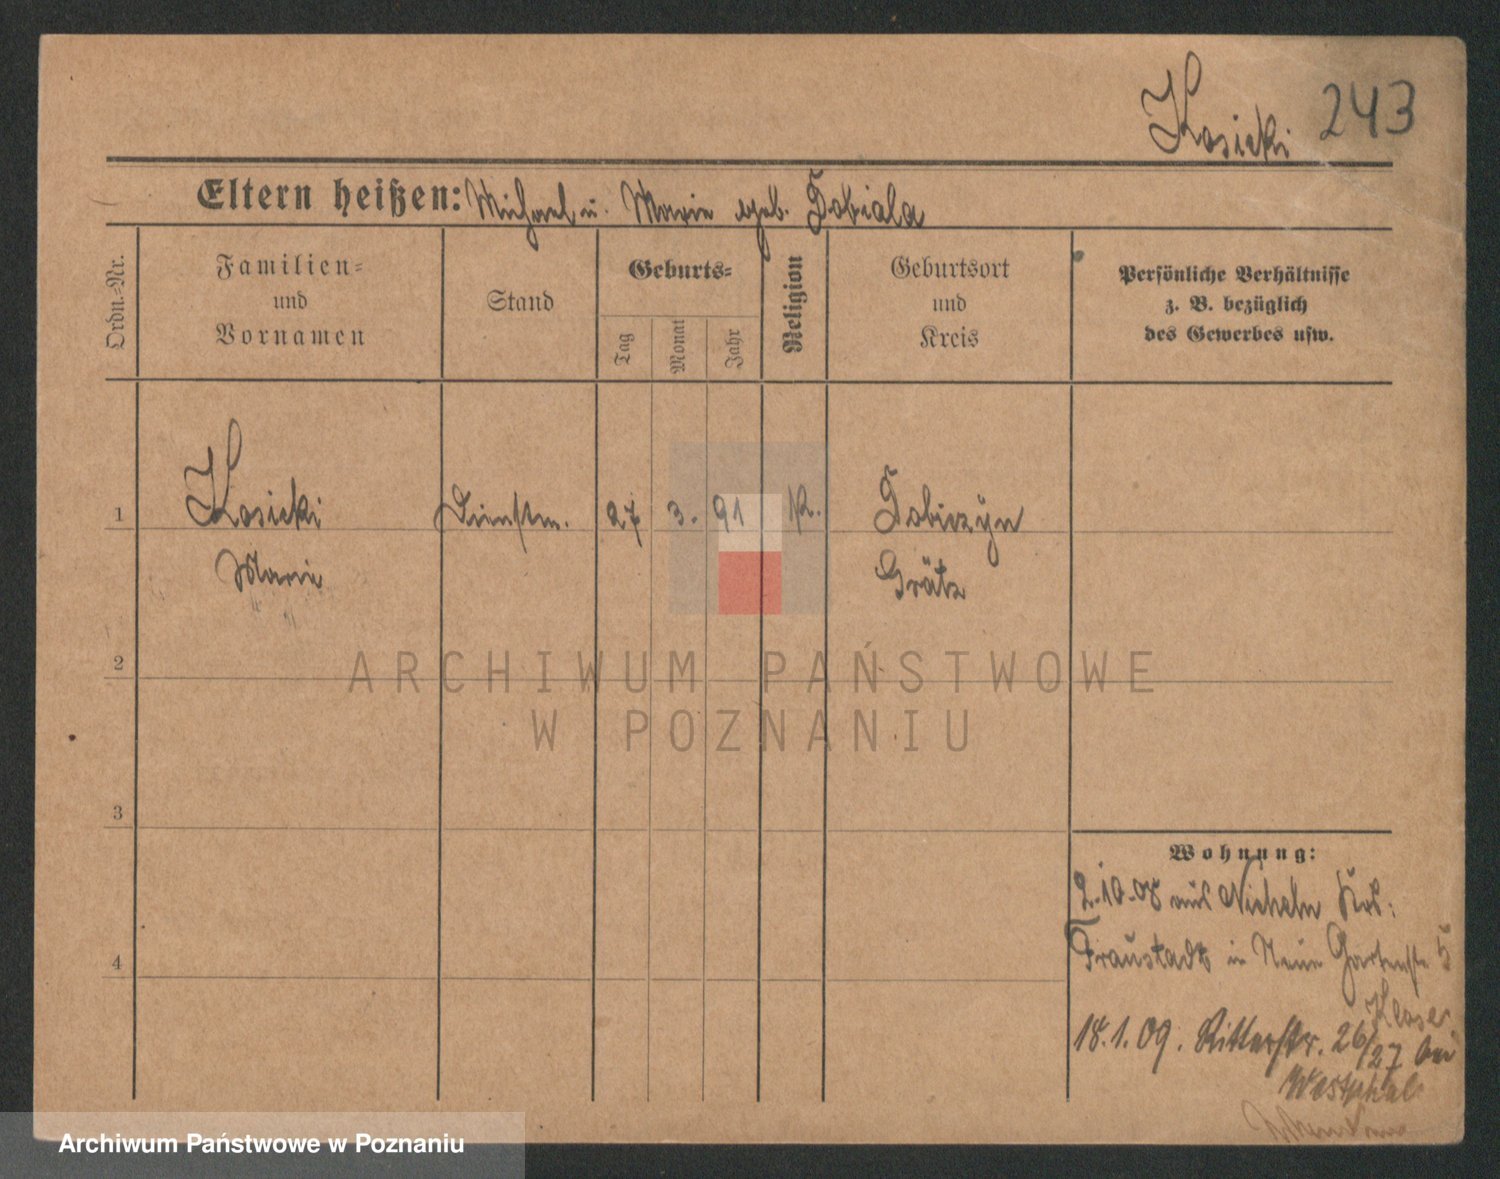 Kosicki 243
Eltern heißen: Michael u. Marie geb. Tobiala
Ordn.-Nr.
Familien-
und
Vornamen
Stand
Geburts-
Tag
Monat
Jahr
Religion
Geburtsort
und
Kreis
Persönliche Verhältnisse
z. B. bezüglich
des Gewerbes usw.
1 Kosicki Dienstm. 27 3. 91 K.
Marie Grätz
2
3
4
ARCHIWUM PAŃSTWOWE
W POZNANIU
Wohnung:
2.10.08 aus
Fraustadt in Neue Gartenstr 5
18.1.09. Ritterstr. 26/27 bei
Westphal
Archiwum Państwowe w Poznaniu